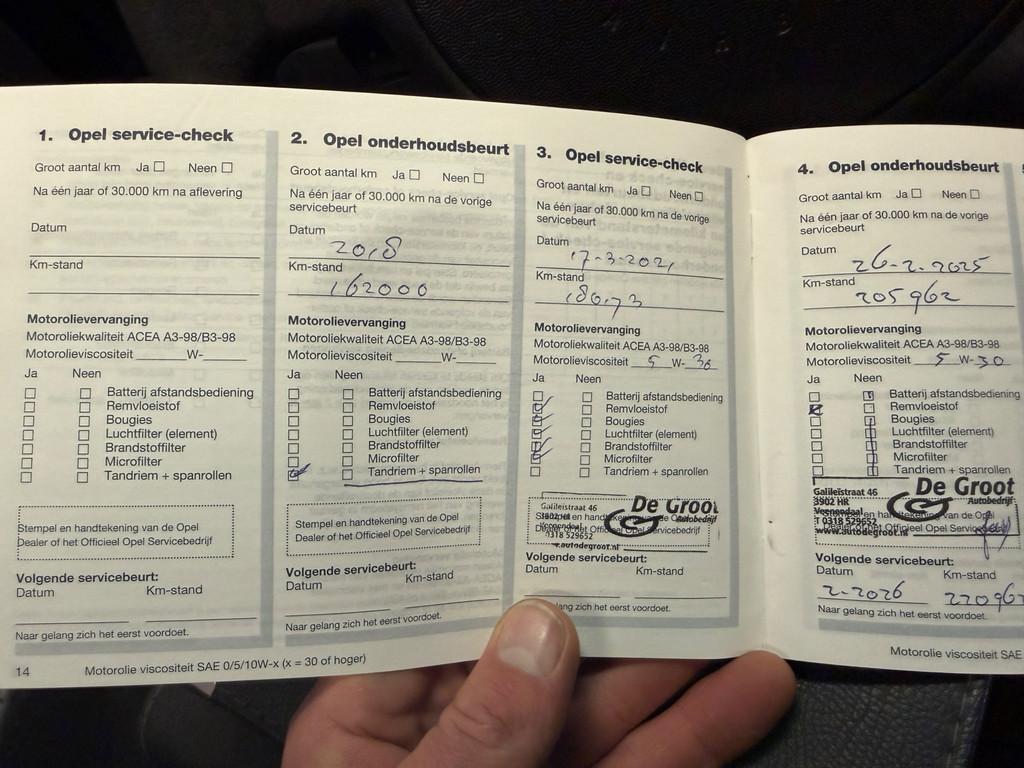 1. Opel service-check
Groot aantal km Ja Neen
Na één jaar of 30.000 km na aflevering
Datum
Km-stand
Motorolievervanging
Motoroliekwaliteit ACEA A3-98/B3-98
Motorolieviscositeit ______W-______
Ja Neen
Batterij afstandsbediening
Remvloeistof
Bougies
Luchtfilter (element)
Brandstoffilter
Microfilter
Tandriem + spanrollen
Stempel en handtekening van de Opel
Dealer of het Officieel Opel Servicebedrijf
Volgende servicebeurt:
Datum Km-stand
Naar gelang zich het eerst voordoet.
14 Motorolie viscositeit SAE 0/5/10W-x (x = 30 of hoger)
2. Opel onderhoudsbeurt
Groot aantal km Ja Neen
Na één jaar of 30.000 km na de vorige
servicebeurt
Datum
2018
Km-stand
162000
Motorolievervanging
Motoroliekwaliteit ACEA A3-98/B3-98
Motorolieviscositeit ______W-
Ja Neen
Batterij afstandsbediening
Remvloeistof
Bougies
Luchtfilter (element)
Brandstoffilter
Microfilter
Tandriem + spanrollen
Stempel en handtekening van de Opel
Dealer of het Officieel Opel Servicebedrijf
Volgende servicebeurt:
Datum Km-stand
Naar gelang zich het eerst voordoet.
3. Opel service-check
Groot aantal km Ja Neen
Na één jaar of 30.000 km na de vorige
servicebeurt
Datum
17-3-2021
Km-stand
Motorolievervanging
Motoroliekwaliteit ACEA A3-98/B3-98
Motorolieviscositeit 5 W-30
Ja Neen
Batterij afstandsbediening
Remvloeistof
Bougies
Luchtfilter (element)
Brandstoffilter
Microfilter
Tandriem + spanrollen
De Groot
Autobedrijf
Galileïstraat 46
3902 HR
Veenendaal
0318 529652
www.autodegroot.nl
Volgende servicebeurt:
Datum Km-stand
zich het eerst voordoet.
4. Opel onderhoudsbeurt
Groot aantal km Ja Neen
Na één jaar of 30.000 km na de vorige
servicebeurt
Datum
26-2-2025
Km-stand
205962
Motorolievervanging
Motoroliekwaliteit ACEA A3-98/B3-98
Motorolieviscositeit 5 W-30
Ja Neen
Batterij afstandsbediening
Remvloeistof
Bougies
Luchtfilter (element)
Brandstoffilter
Microfilter
Tandriem + spanrollen
De Groot
Autobedrijf
Galileïstraat 46
3902 HR
Veenendaal
T 0318 529652
www.autodegroot.nl
Volgende servicebeurt:
Datum Km-stand
2-2026 220962
Naar gelang zich het eerst voordoet.
Motorolie viscositeit SAE